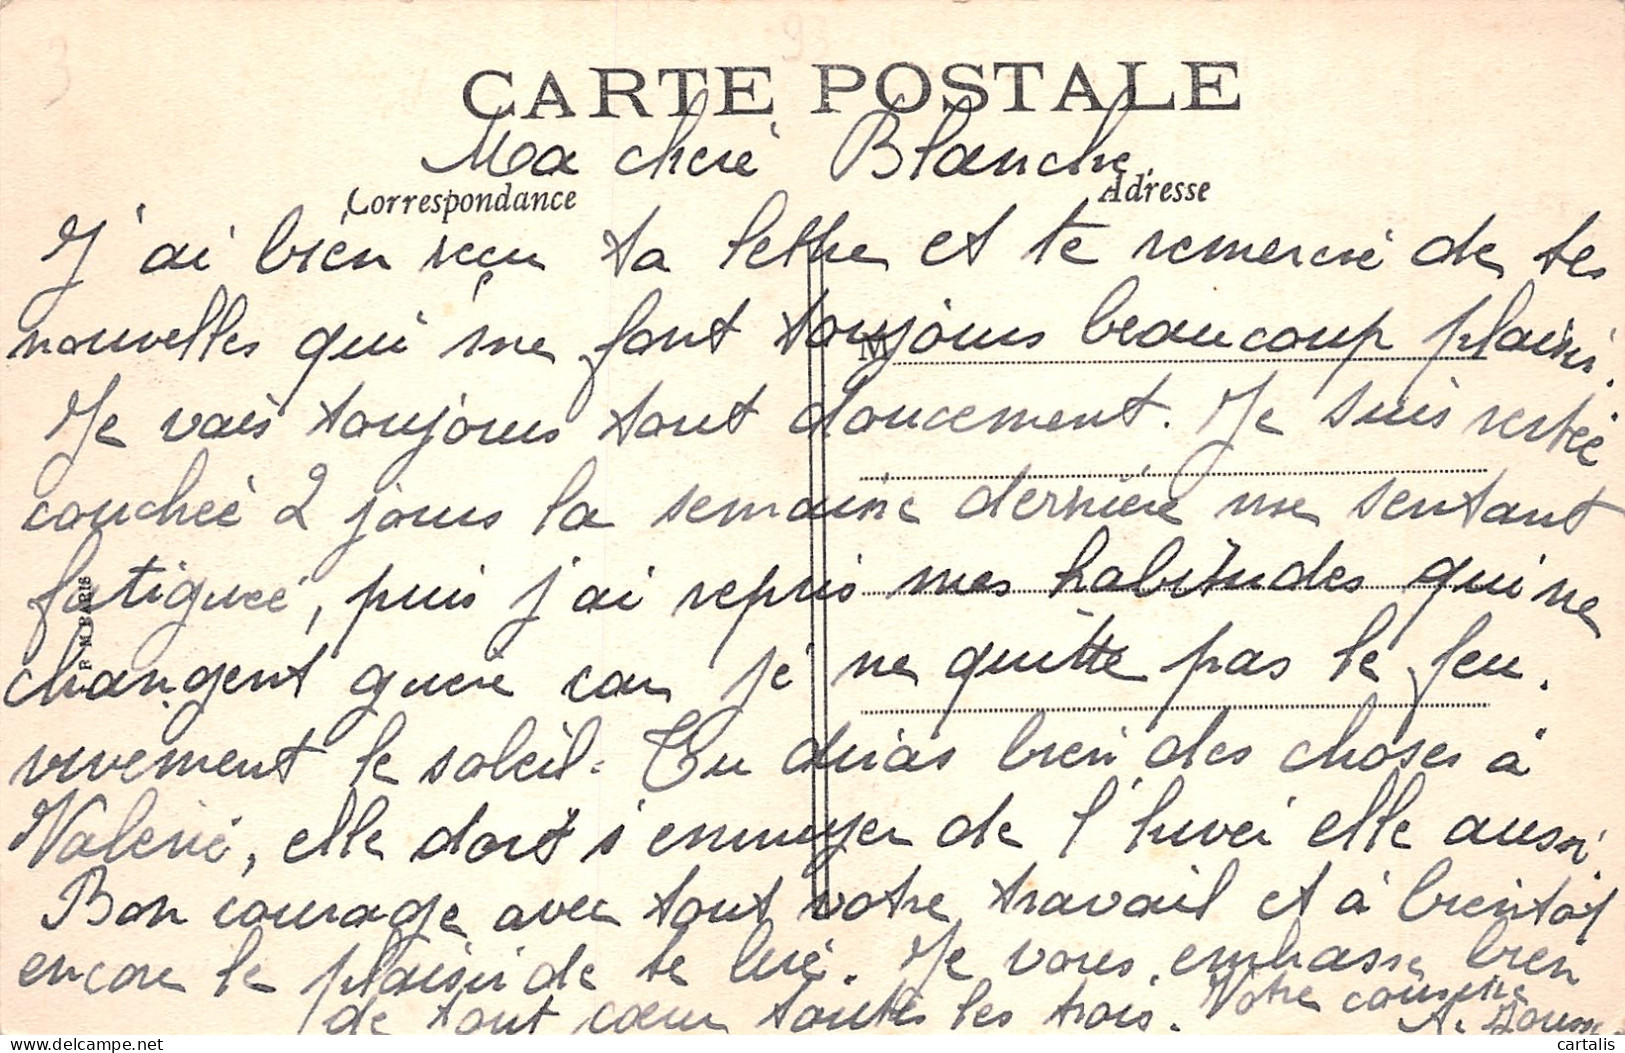 CARTE POSTALE
Ma chère Blanche,
Correspondance
Adresse
J'ai bien reçu ta lettre et te remercie de tes
nouvelles qui me font toujours beaucoup plaisir.
M
Je vais toujours tout doucement. Je suis restée
couchée 2 jours la semaine dernière me sentant
fatiguée, puis j'ai repris mes habitudes qui ne
changent guère car je ne quitte pas le feu.
vivement le soleil. Tu diras bien des choses à
Valérie, elle doit s'ennuyer de l'hiver elle aussi
Bon courage avec tout votre travail et à bientôt
encore le plaisir de te lire. Je vous embrasse bien
de tout cœur toutes les trois. Votre cousine
A.
F. M. PARIS
cartalis